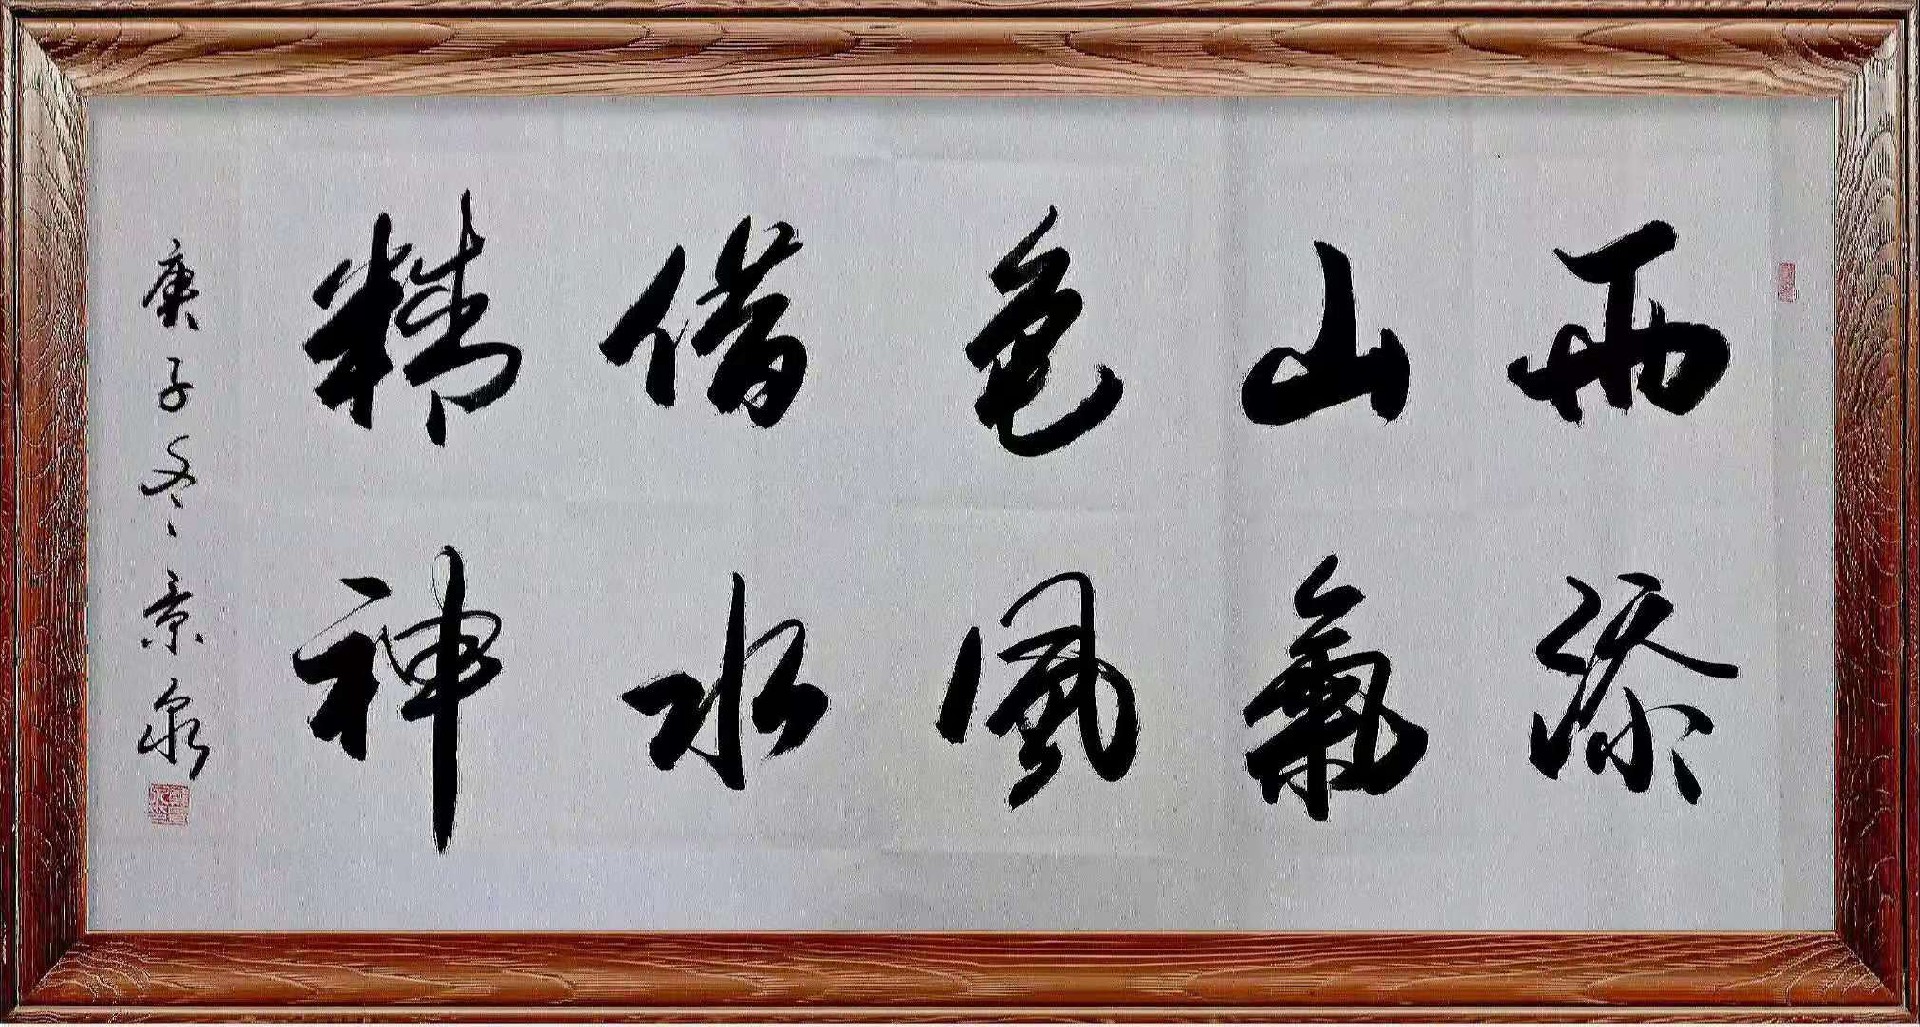 雨添
山氣
色風
借水
精神
庚子冬景泉